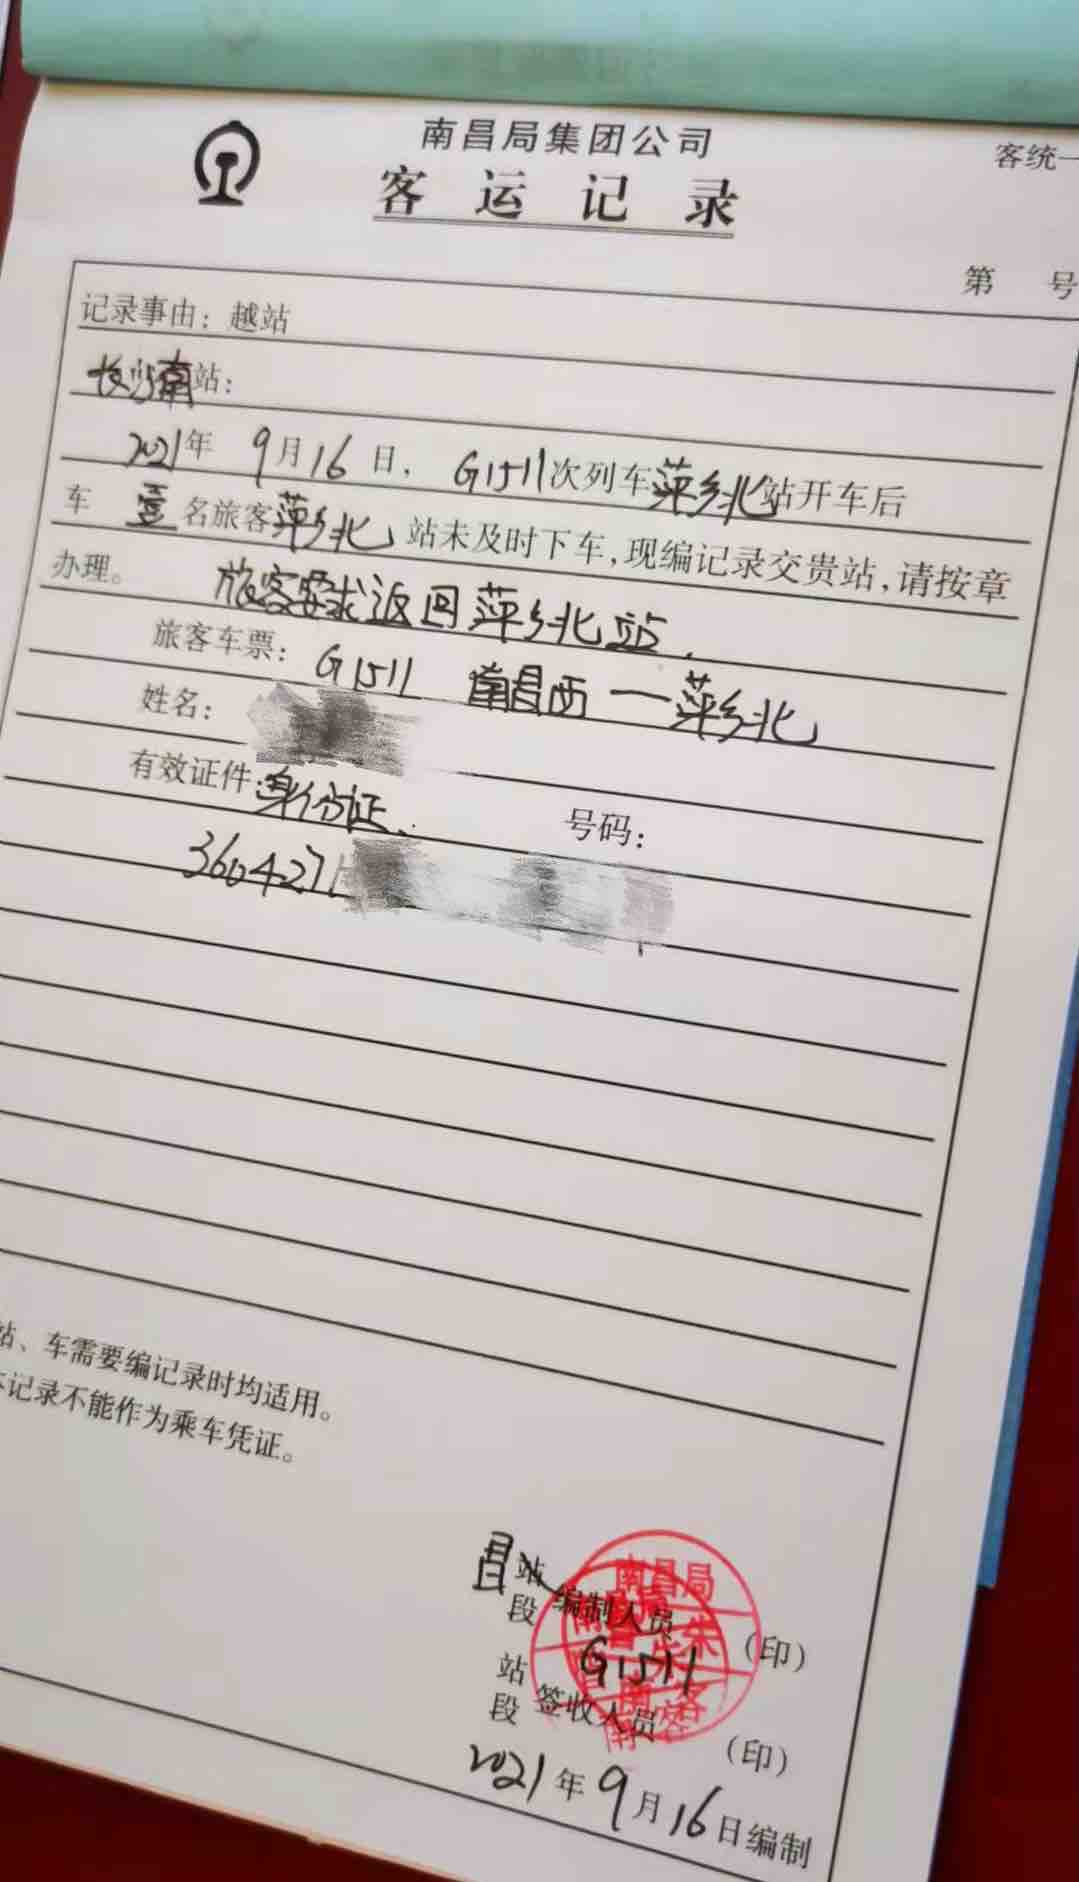 南昌局集团公司
客统一
客运记录
第 号
记录事由：越站
长沙南站：
2021年 9月16日，G1511次列车萍乡北站开车后
车 壹名旅客萍乡北站未及时下车，现编记录交贵站，请按章
办理。 旅客要求返回萍乡北站.
旅客车票：G1511 南昌西—萍乡北
姓名：
有效证件：身份证、 号码：
360427
站、车需要编记录时均适用。
本记录不能作为乘车凭证。
昌站
段 编制人员 （印）
南昌局
G1511
站
段 签收人员 （印）
2021年9月16日编制